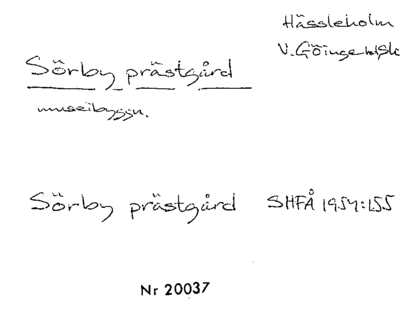 Hässleholm
V. Göinge
Sörby prästgård
museibyggn.
Sörby prästgård SHFÅ 1954:155
Nr 20037